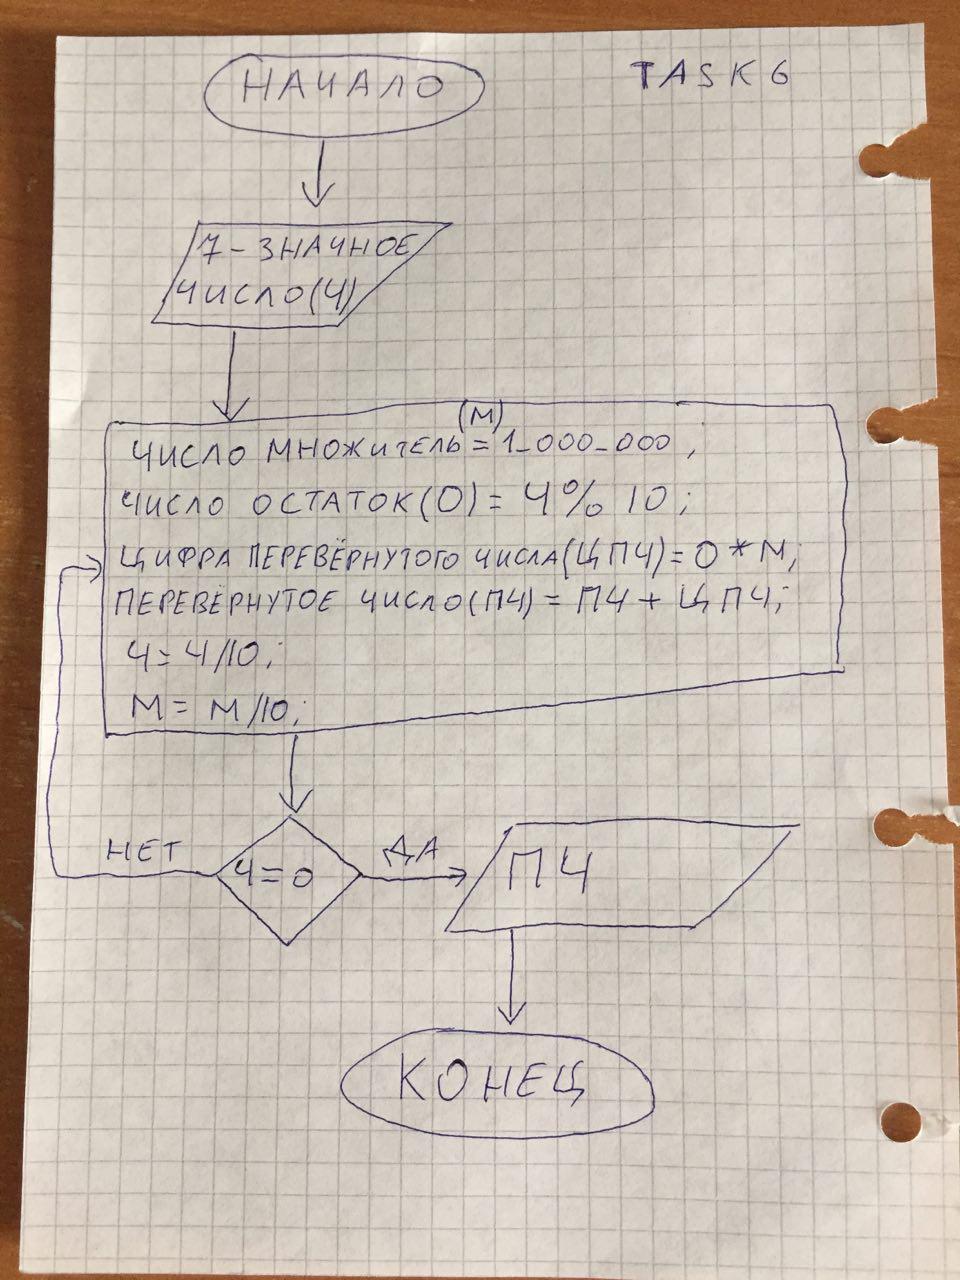 НАЧАЛО
TASK 6
7-ЗНАЧНОЕ
ЧИСЛО(Ч)
(М)
ЧИСЛО МНОЖИТЕЛЬ = 1_000_000 ;
ЧИСЛО ОСТАТОК(О) = Ч% 10 ;
ЦИФРА ПЕРЕВЁРНУТОГО ЧИСЛА(ЦПЧ)= О * М;
ПЕРЕВЁРНУТОЕ ЧИСЛО(ПЧ) = ПЧ + ЦПЧ;
Ч = Ч/10;
М = М/10;
НЕТ
Ч=0
ДА
ПЧ
КОНЕЦ